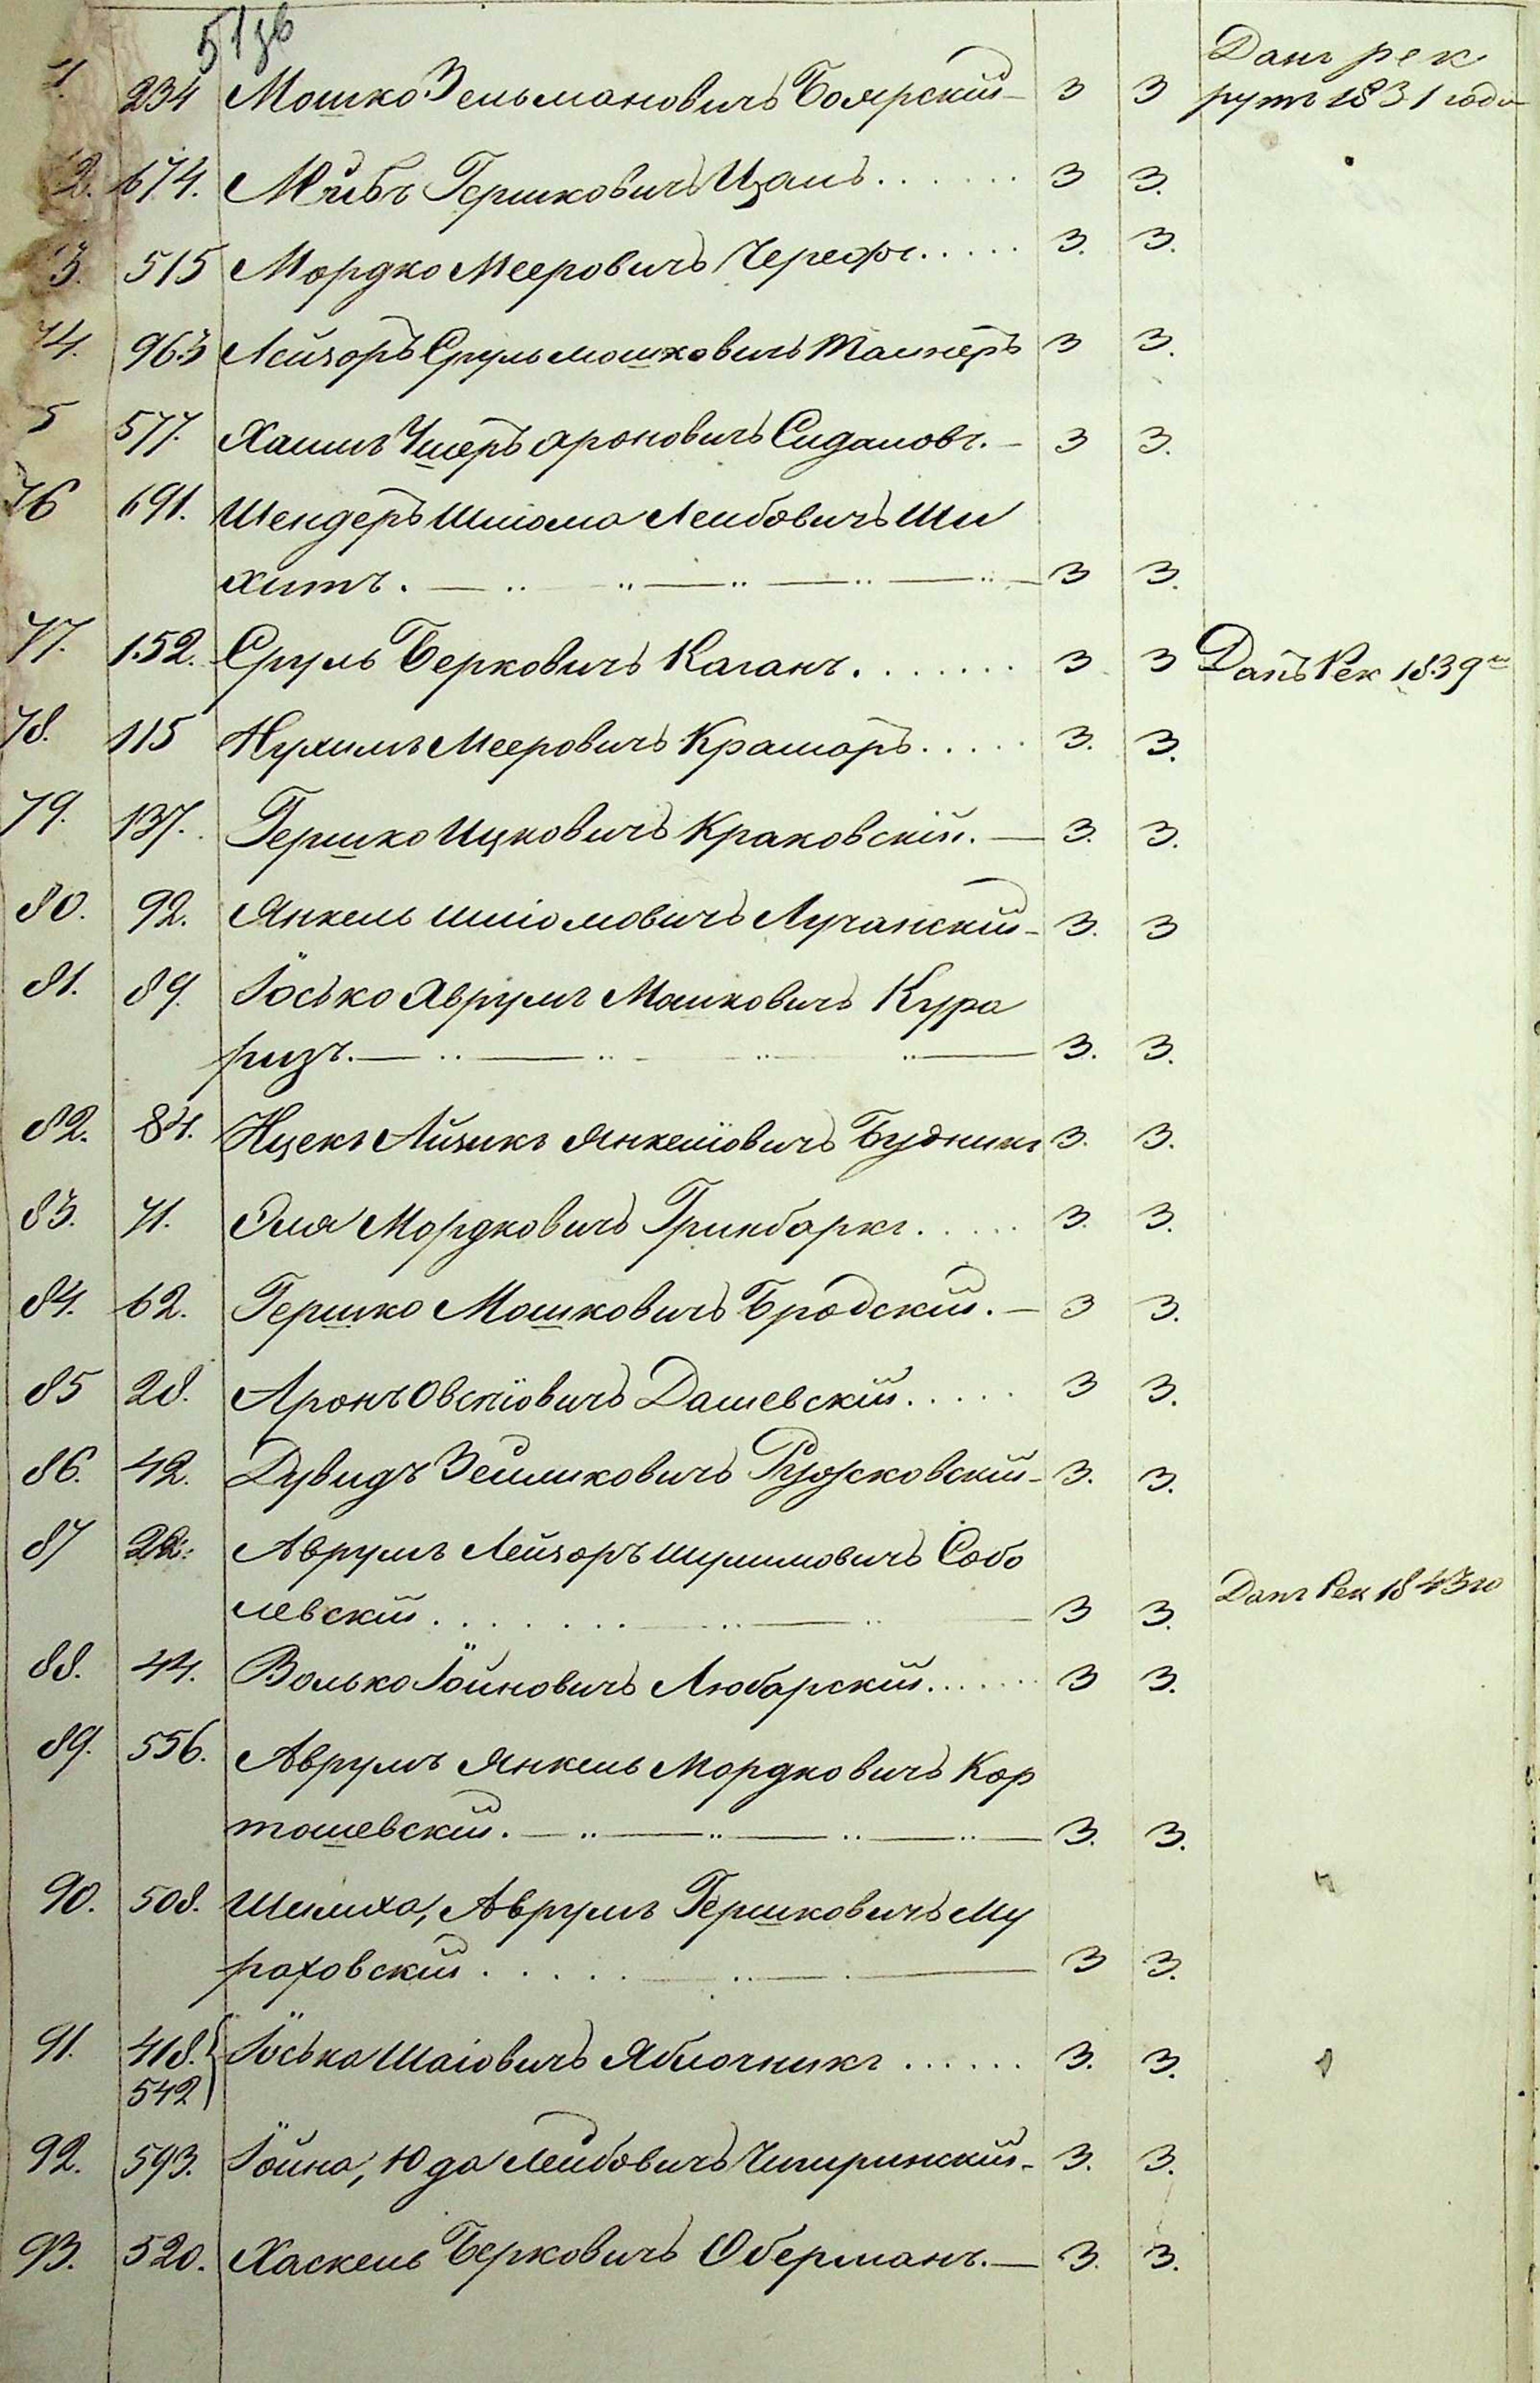 51 зв
1. 234 Мошко Зельмановичъ Боярскій 3 3 Данъ рек
рутъ 1831 года
2. 674. Лейбъ Гершковичъ Цапъ 3 3.
3. 515 Мордко Мееровичъ 3. 3.
74. 963 Лейзоръ Сруль Мошковичъ 3 3.
5 577. Хаимъ Ушеръ Ароновичъ 3 3.
76 691. Шендеръ Шлюма Лейбовичъ Ши
хитъ. 3 3.
77. 152. Сруль Берковичъ Каганъ 3 3 Данъ Рек 1839
78. 115 Нухимъ Мееровичъ Крамаръ 3. 3.
79. 137. Гершко Ицковичъ Краковскій. 3. 3.
80. 92. Янкель Шліомовичъ Лучанскій 3. 3
81. 89. Іосько Аврумъ Машковичъ Кура
ризъ. 3. 3.
82. 84. Ицекъ Айзикъ Янкеліовичъ Будникъ 3. 3.
83. 71. Эля Мордковичъ Гринбаркъ 3. 3.
84. 62. Гершко Мошковичъ Бродскій. 3 3.
85 28. Аронъ Овсіовичъ Дашевскій 3 3.
86. 42. Дувидъ Зейликовичъ 3. 3.
87 22. Аврумъ Лейзоръ Шулимовичъ Собо
левскій 3 3. Данъ Рек 1843го
88. 44. Волько Іойновичъ Любарскій 3 3.
89. 556. Аврумъ Янкель Мордковичъ Кор
ташевскій. 3. 3.
90. 508. Шимха, Аврумъ Гершковичъ Му
раховскій 3 3.
91. 418. Іоська Шаіовичъ Яблочникъ 3. 3.
542
92. 593. Іойна, Юда Лейбовичъ Чигиринскій 3. 3.
93. 520. Хаскель Берковичъ Оберманъ. 3. 3.